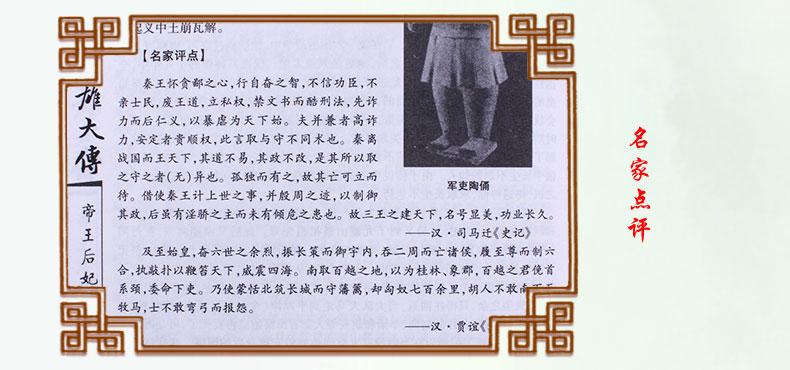 起义中土崩瓦解。
【名家评点】
秦王怀贪鄙之心,行自奋之智,不信功臣,不
亲士民,废王道,立私权,禁文书而酷刑法,先诈
力而后仁义,以暴虐为天下始。夫并兼者高诈
力,安定者贵顺权,此言取与守不同术也。秦离
战国而王天下,其道不易,其政不改,是其所以取
之守之者(无)异也。孤独而有之,故其亡可立而
待。借使秦王计上世之事,并殷周之迹,以制御
其政,后虽有淫骄之主而未有倾危之患也。故三王之建天下,名号显美,功业长久。
——汉·司马迁《史记》
及至始皇,奋六世之余烈,振长策而御宇内,吞二周而亡诸侯,履至尊而制六
合,执敲扑以鞭笞天下,威震四海。南取百越之地,以为桂林、象郡,百越之君俛首
系颈,委命下吏。乃使蒙恬北筑长城而守藩篱,却匈奴七百余里,胡人不敢南下而
牧马,士不敢弯弓而报怨。
——汉·贾谊《
军吏陶俑
雄大傳
帝王后妃
名家点评